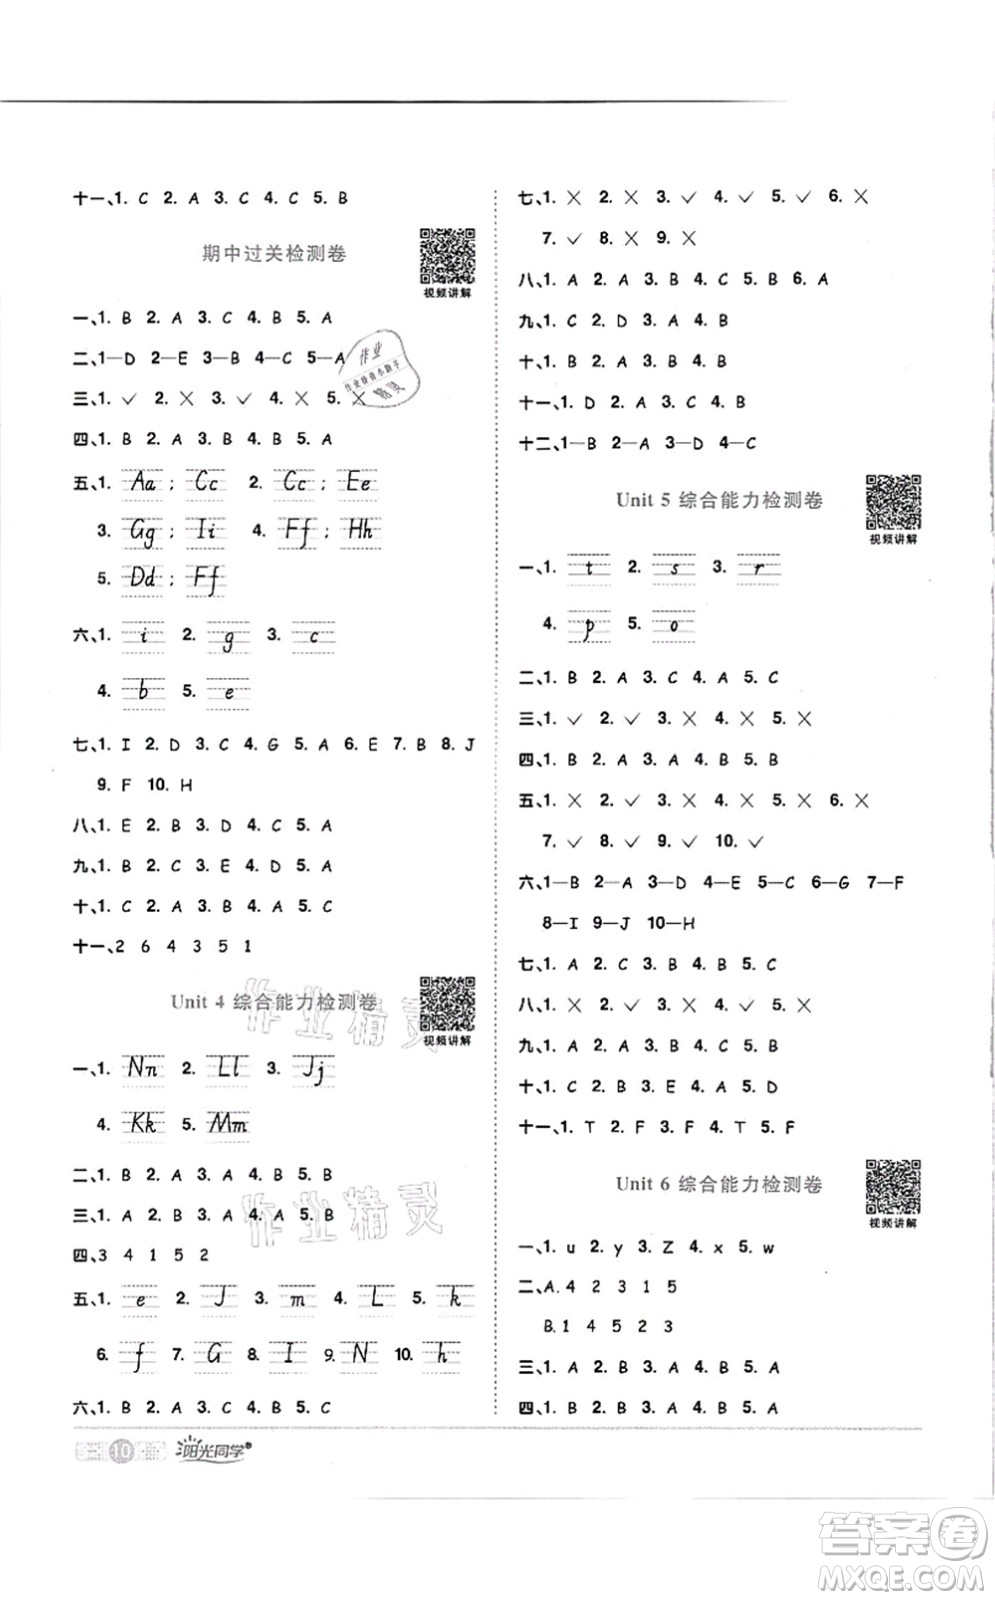 十一、1. C 2. A 3. C 4. C 5. B
期中过关检测卷
视频讲解
一、1. B 2. A 3. C 4. B 5. A
二、1—D 2—E 3—B 4—C 5—A
三、1. ✓ 2. × 3. ✓ 4. × 5. ×
四、1. B 2. A 3. B 4. B 5. A
五、1. Aa ; Cc 2. Cc ; Ee
3. Gg ; Ii 4. Ff ; Hh
5. Dd ; Ff
六、1. i 2. g 3. c
4. b 5. e
七、1. I 2. D 3. C 4. G 5. A 6. E 7. B 8. J
9. F 10. H
八、1. E 2. B 3. D 4. C 5. A
九、1. B 2. C 3. E 4. D 5. A
十、1. C 2. A 3. B 4. A 5. C
十一、2 6 4 3 5 1
Unit 4 综合能力检测卷
视频讲解
一、1. Nn 2. Ll 3. Jj
4. Kk 5. Mm
二、1. B 2. A 3. A 4. B 5. B
三、1. A 2. B 3. A 4. A 5. B
四、3 4 1 5 2
五、1. e 2. J 3. m 4. L 5. k
6. f 7. G 8. I 9. N 10. h
六、1. B 2. A 3. C 4. B 5. C
10
阳光同学
七、1. × 2. × 3. ✓ 4. ✓ 5. ✓ 6. ×
7. ✓ 8. × 9. ×
八、1. A 2. A 3. B 4. C 5. B 6. A
九、1. C 2. D 3. A 4. B
十、1. B 2. A 3. A 4. B
十一、1. D 2. A 3. C 4. B
十二、1—B 2—A 3—D 4—C
Unit 5 综合能力检测卷
视频讲解
一、1. t 2. s 3. r
4. p 5. o
二、1. B 2. A 3. C 4. A 5. C
三、1. ✓ 2. ✓ 3. × 4. × 5. ×
四、1. B 2. A 3. A 4. B 5. B
五、1. × 2. ✓ 3. × 4. × 5. × 6. ×
7. ✓ 8. ✓ 9. ✓ 10. ✓
六、1—B 2—A 3—D 4—E 5—C 6—G 7—F
8—I 9—J 10—H
七、1. A 2. C 3. B 4. B 5. C
八、1. × 2. ✓ 3. × 4. ✓ 5. ×
九、1. A 2. A 3. B 4. B 5. A
十、1. C 2. B 3. E 4. A 5. D
十一、1. T 2. F 3. F 4. T 5. F
Unit 6 综合能力检测卷
视频讲解
一、1. u 2. y 3. Z 4. x 5. w
二、A. 4 2 3 1 5
B. 1 4 5 2 3
三、1. A 2. B 3. B 4. B 5. A
四、1. B 2. B 3. A 4. B 5. A
作业精灵
作业精灵
答案卷
MXQE.COM